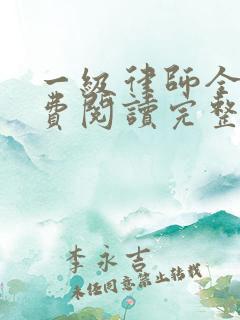 一級律師全
費閱讀完整
李永吉
未经同意禁止转载